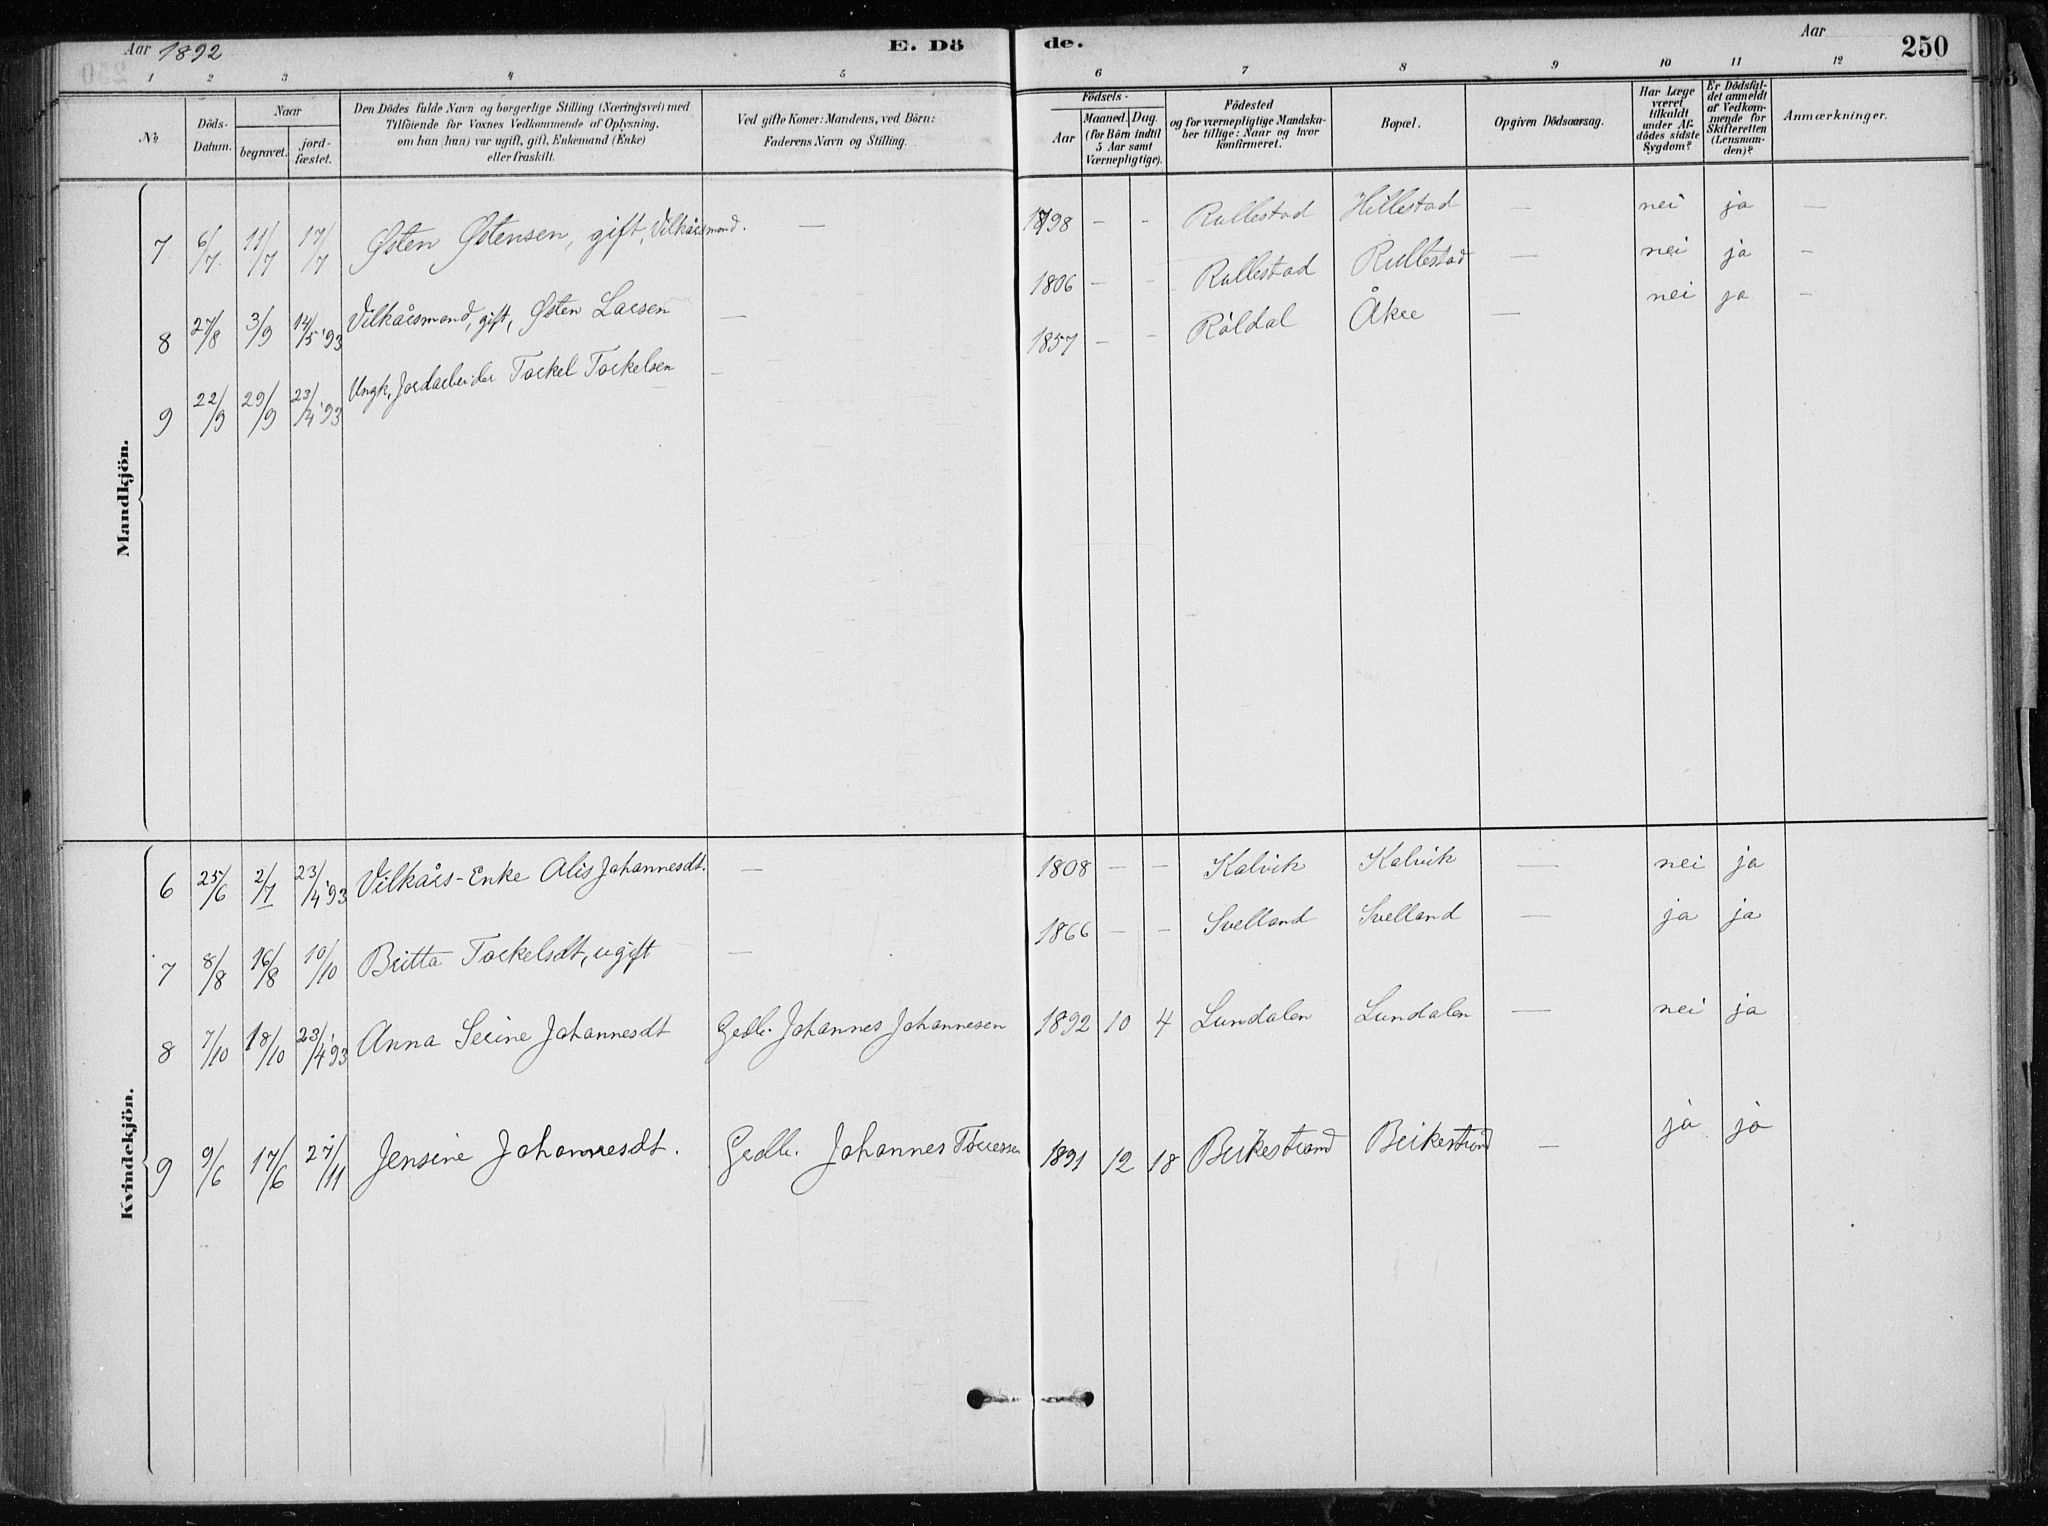 Aar 1892
E. Dö
de.
Aar
250
1 2 3 4 5 6 7 8 9 10 11 12
No
Döds-
Datum.
Naar
begravet.
jord-
fæstet.
Den Dödes fulde Navn og borgerlige Stilling (Næringsvei) med
Tilföiende for Voxnes Vedkommende af Oplysning,
om han (hun) var ugift, gift, Enkemand (Enke)
eller fraskilt.
Ved gifte Koner: Mandens, ved Börn:
Faderens Navn og Stilling.
Födsels-
Aar
Maaned. Dag.
(for Börn indtil
5 Aar samt
Værnepligtige).
Födested
og for værnepligtige Mandska-
ber tillige: Naar og hvor
konfirmeret.
Bopæl.
Opgiven Dödsaarsag.
Har Læge
været
tilkaldt
under Af-
dödes sidste
Sygdom?
Er Dödsfal-
det anmeldt
af Vedkom-
mende for
Skifteretten
(Lensman-
den)?
Anmærkninger.
Mandkjön.
7 6/7 11/7 17/7 Østen Østensen, gift, Vilkårsmand. — 1798 - - Rullestad Hillestad — nei ja —
8 27/8 3/9 14/5 '93 Vilkårsmand, gift, Østen Larsen — 1806 - - Rullestad Rullestad — nei ja —
9 22/9 29/9 23/4 '93 Ungk, Jordarbeider Torkel Torkelsen — 1857 - - Røldal Åkre — nei ja —
Kvindekjön.
6 25/6 2/7 23/4 '93 Vilkårs-Enke Alis Johannesdt. — 1808 - - Kalvik Kalvik — nei ja
7 8/8 16/8 10/10 Britta Torkelsdt, ugift — 1866 - - Svelland Svelland — ja ja
8 7/10 18/10 23/4 '93 Anna Serine Johannesdt Grdbr. Johannes Johannesen 1892 10 4 Lundalen Lundalen — nei ja
9 9/6 17/6 27/11 Jensine Johannesdt. Grdbr. Johannes Tørressen 1891 12 18 Beikestrand Beikestrand — ja ja